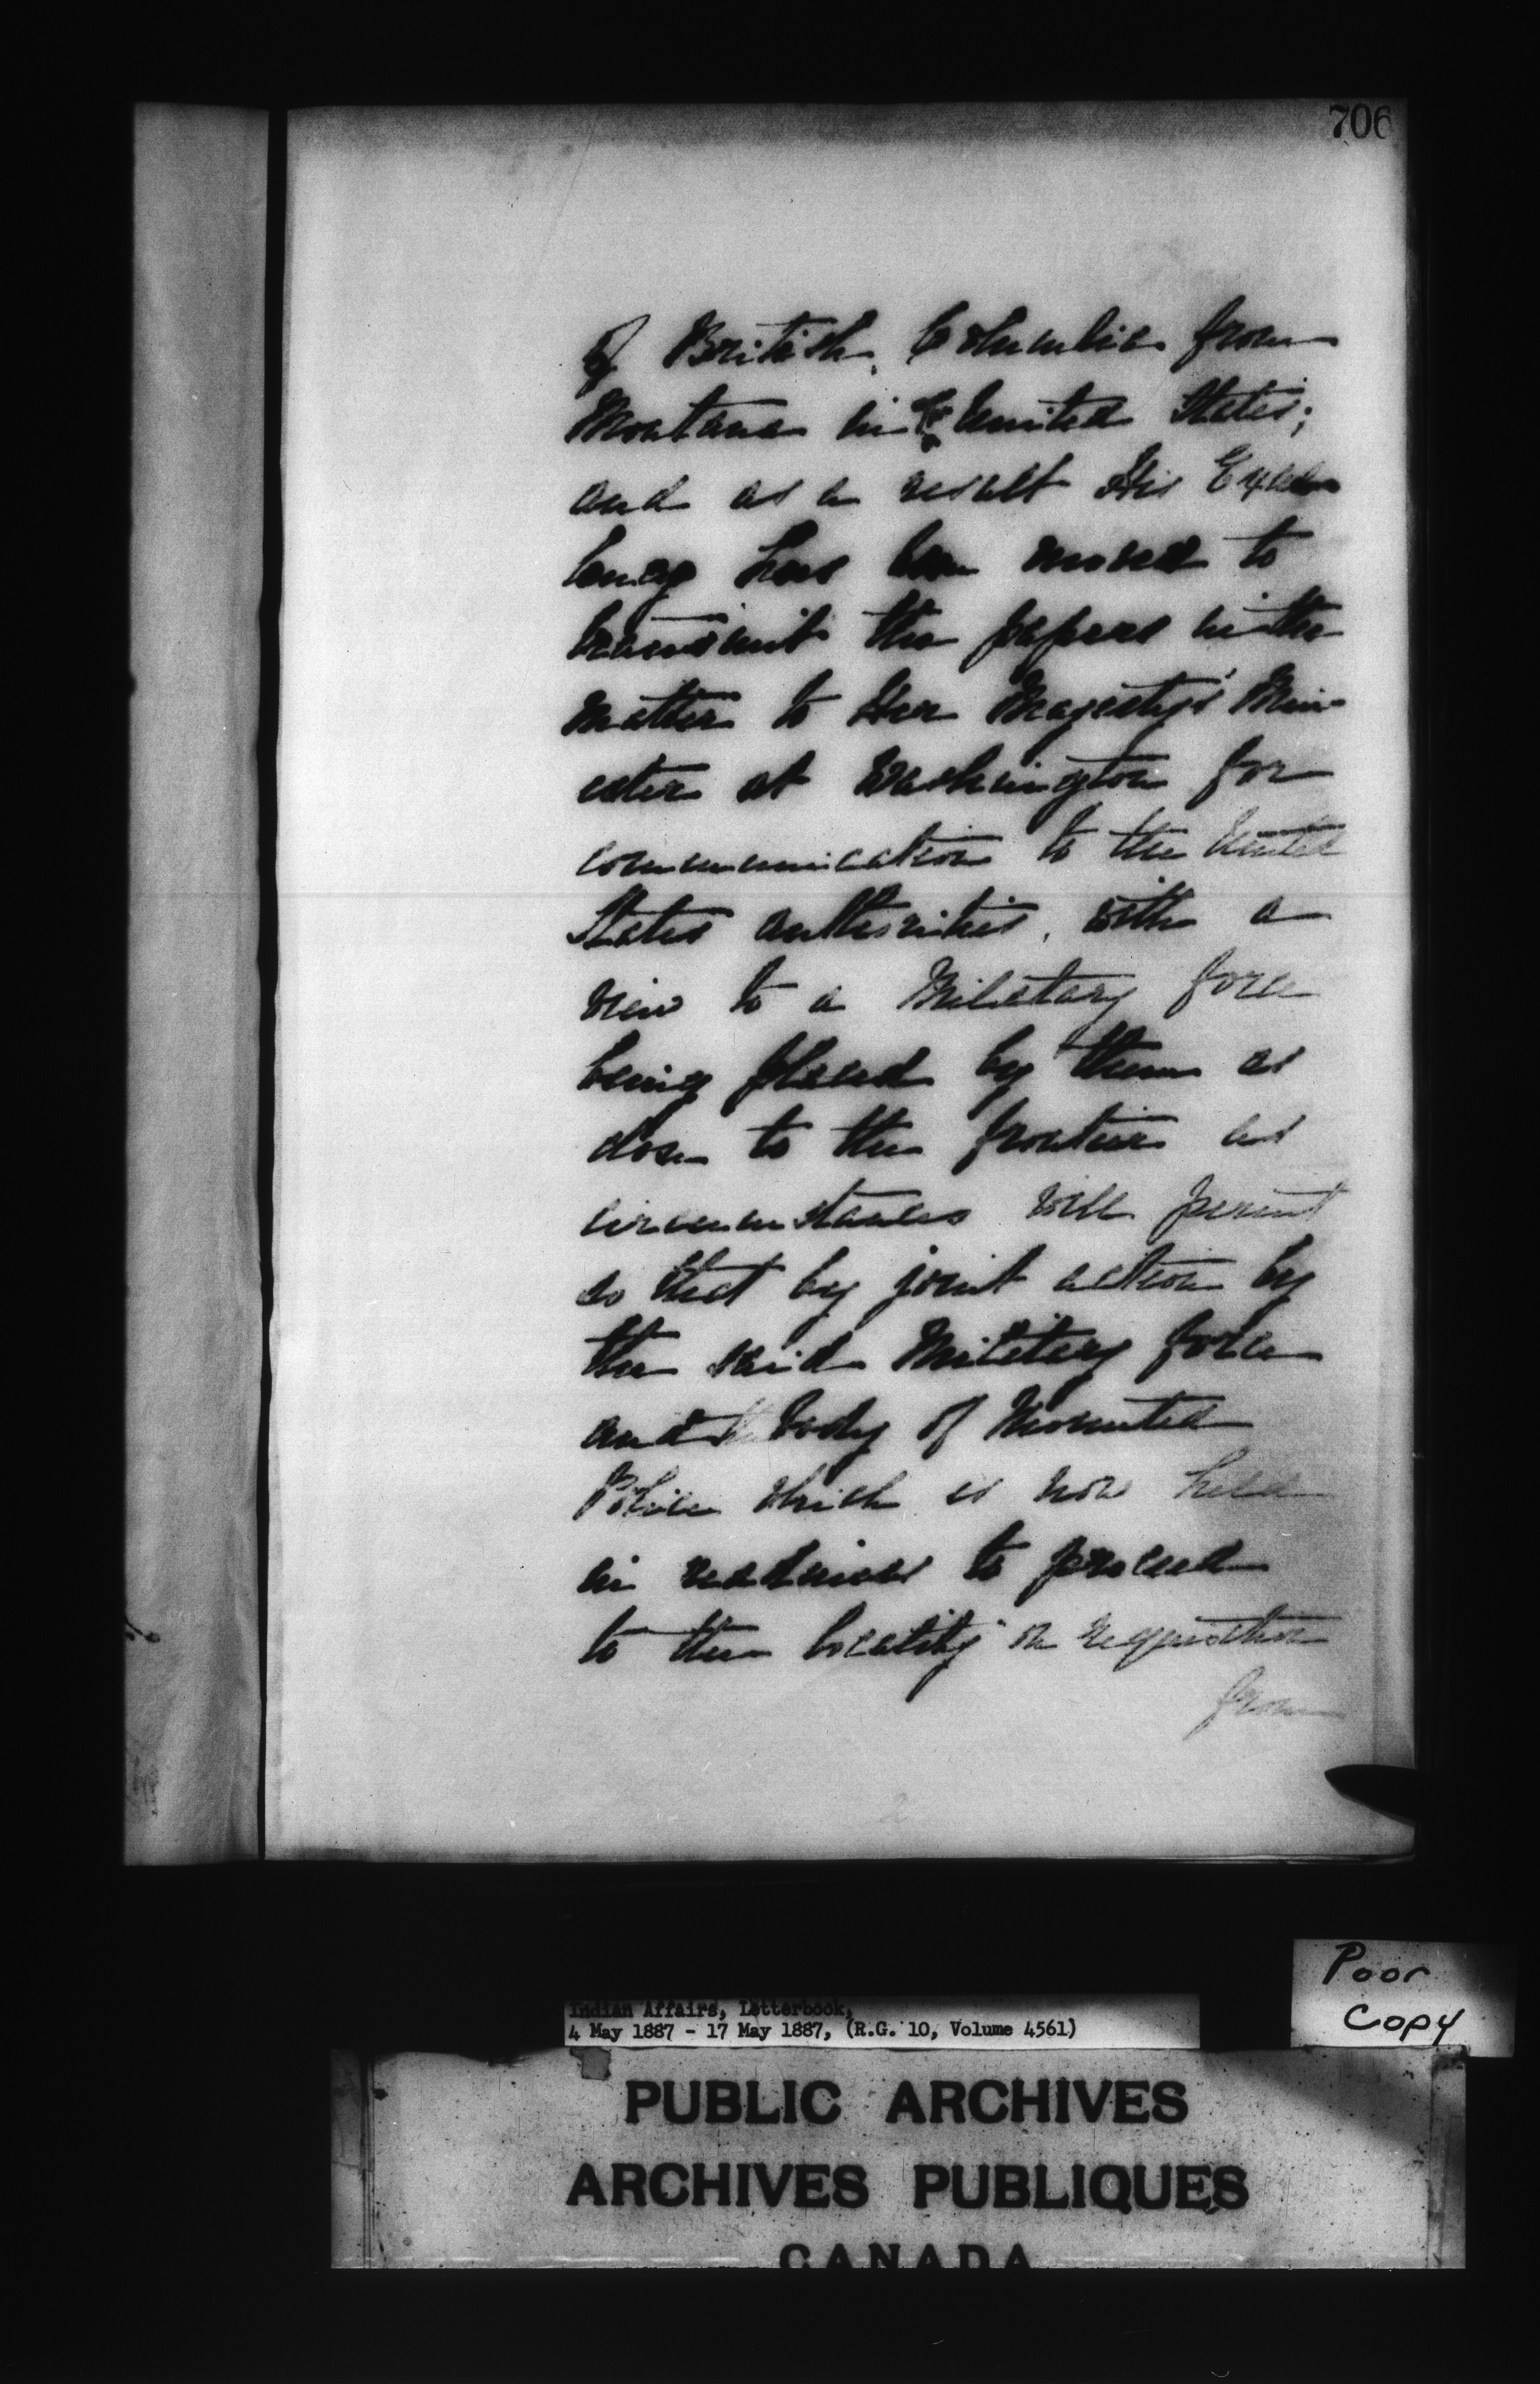 706
of British Columbia from
Montana in the United States;
and as a result His Excel
lency has been moved to
transmit the papers in the
matter to Her Majesty's Min
ister at Washington for
communication to the United
States authorities, with a
view to a Military force
being placed by them as
close to the frontier as
circumstances will permit
so that by joint action by
the said Military force
and the body of Mounted
Police which is now held
in readiness to proceed
to the locality on requisition
from
Poor
Copy
Indian Affairs, Letterbook,
4 May 1887 - 17 May 1887, (R.G. 10, Volume 4561)
PUBLIC ARCHIVES
ARCHIVES PUBLIQUES
CANADA